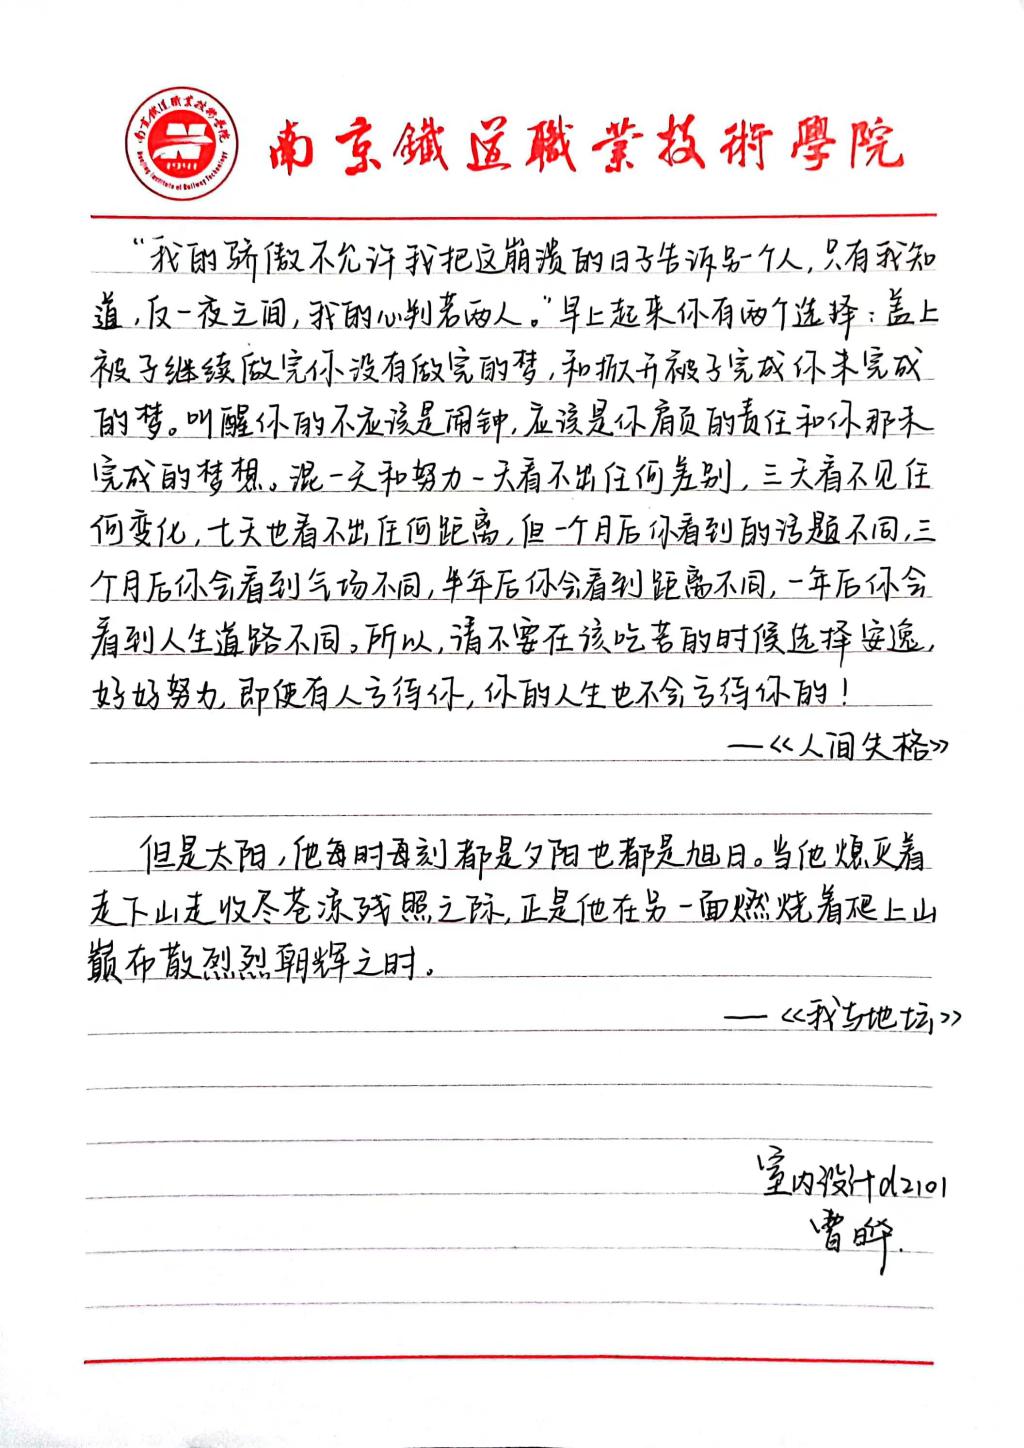 南京鐵道職業技術學院
南京鐵道職業技術學院
1941
Nanjing Institute of Railway Technology
“我的骄傲不允许我把这崩溃的日子告诉另一个人,只有我知
道,仅一夜之间,我的心判若两人。”早上起来你有两个选择:盖上
被子继续做完你没有做完的梦,和掀开被子完成你未完成
的梦。叫醒你的不应该是闹钟,应该是你肩负的责任和你那未
完成的梦想。混一天和努力一天看不出任何差别,三天看不见任
何变化,七天也看不出任何距离,但一个月后你看到的话题不同,三
个月后你会看到气场不同,半年后你会看到距离不同,一年后你会
看到人生道路不同。所以,请不要在该吃苦的时候选择安逸,
好好努力,即便有人亏待你,你的人生也不会亏待你的!
—《人间失格》
但是太阳,他每时每刻都是夕阳也都是旭日。当他熄灭着
走下山走收尽苍凉残照之际,正是他在另一面燃烧着爬上山
巅布散烈烈朝辉之时。
—《我与地坛》
室内设计d2101
曹晔.